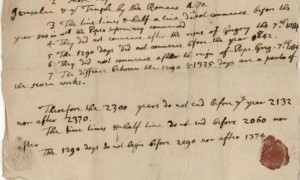 Jerusalem & ye Temple by the Romans A. 70.
3 The time times & half a time did not commence before the
year 800 in wch the Popes supremacy commenced
4 They did not commence after the reigne of Gregory the 7th 1084
5 The 1290 days did not commence before the year 842.
6 They did not commence after the reign of Pope Greg. 7th 1084
7 The difference between the 1290 & 1335 days are a parts of
the seven weeks.
Therefore the 2300 years do not end before ye year 2132
nor after 2370.
The time times & half time do not end before 2060 nor
after
The 1290 days do not begin before 2090 nor after 1374